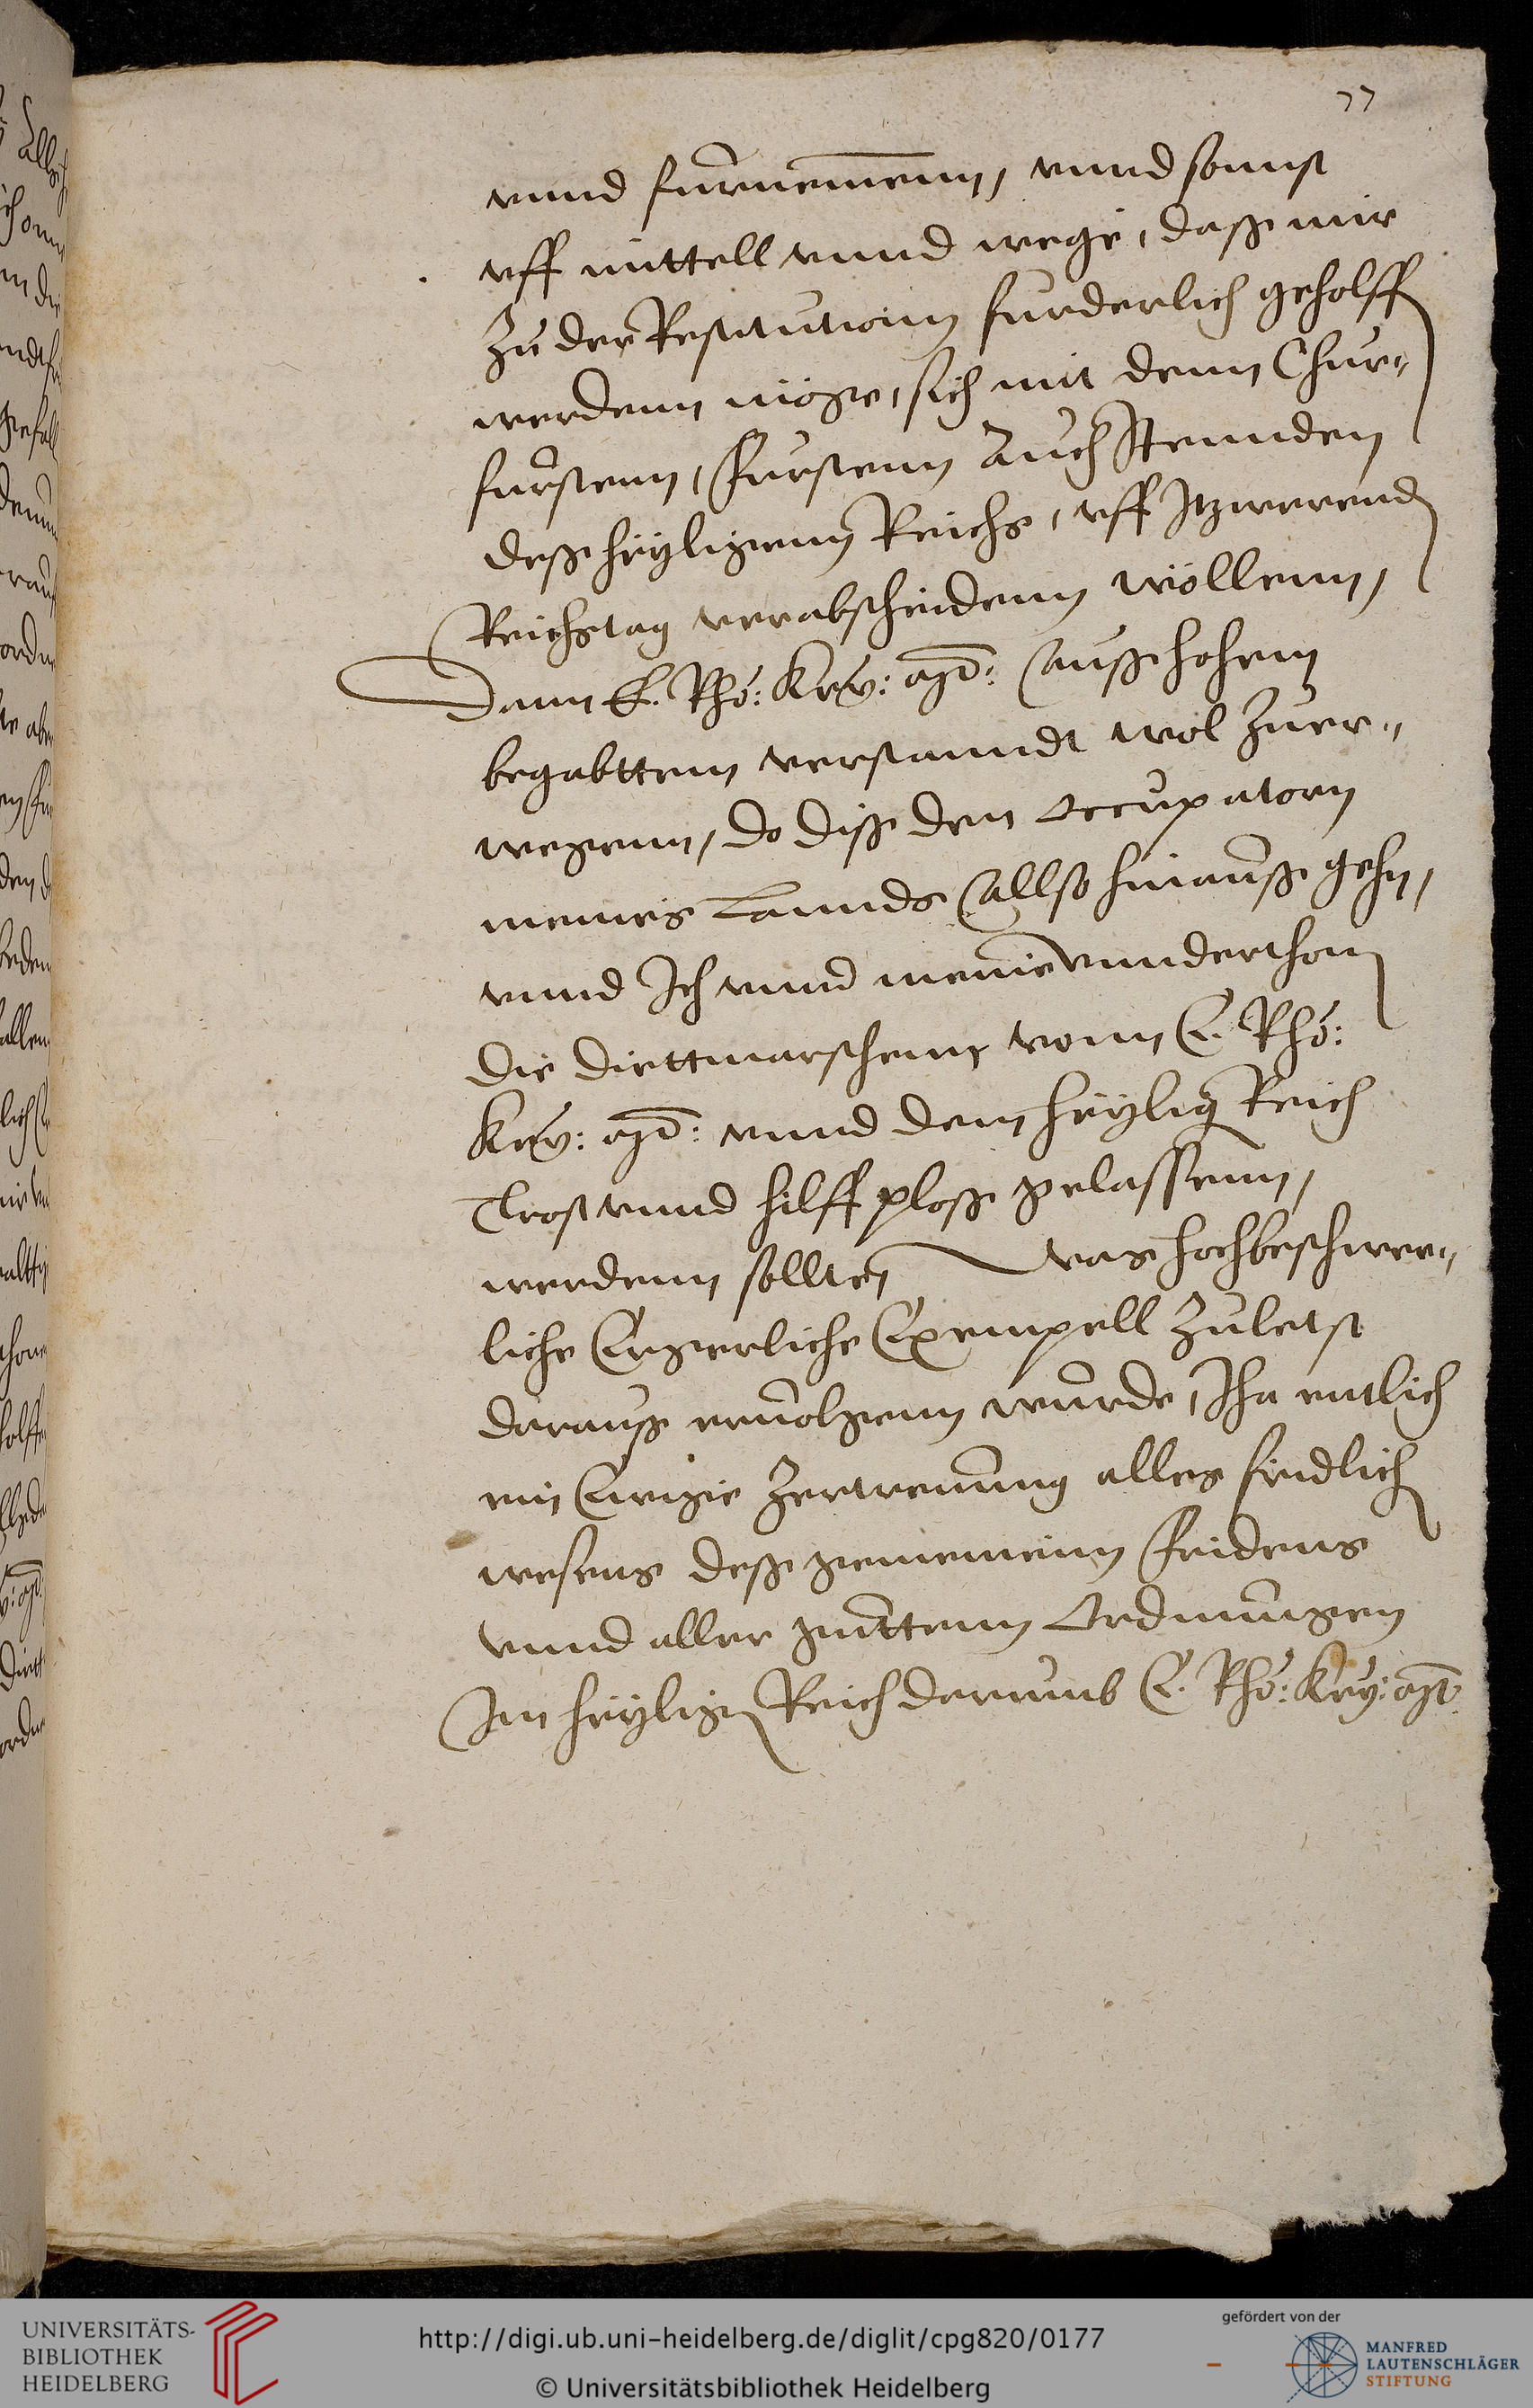 77
vnnd furnemenn, vnnd sonnst
vff mittell vnnd wege, dasse mir
Zu der Restitutionn furderlich geholff
werdenn möge, sich mit denn Chur-
furstenn, Furstenn Auch Stennden
dess heyligenn Reichs, vff Itzwerend
Reichstag verabscheidenn wöllenn,
Dann E. Rho: Key: Mt: ausse hohem
begabttem verstanndt wol Zuer-
wegenn, do disse den Occupatorn
meines Lannds allso hinausse gehn,
vnnd Ich vnnd meine vnnderthon
die diettmarschenn vonn E. Rho:
Key: Mt: vnnd dem heylig Reich
Trost vnnd hilff plosse gelassenn,
werdenn sollten was hochbeschwer-
liche Ergerliche Exempell Zuletst
darausse ervolgenn wurde, Iha entlich
ein Ewige Zertrenung alles fridlich
wesens dess gemeinenn Fridens
vnnd aller guttenn Ordnungen
Im heylign Reich darumb E. Rho: Key: Mt
UNIVERSITÄTS-
BIBLIOTHEK
HEIDELBERG
http://digi.ub.uni-heidelberg.de/diglit/cpg820/0177
© Universitätsbibliothek Heidelberg
gefördert von der
MANFRED
LAUTENSCHLÄGER
STIFTUNG